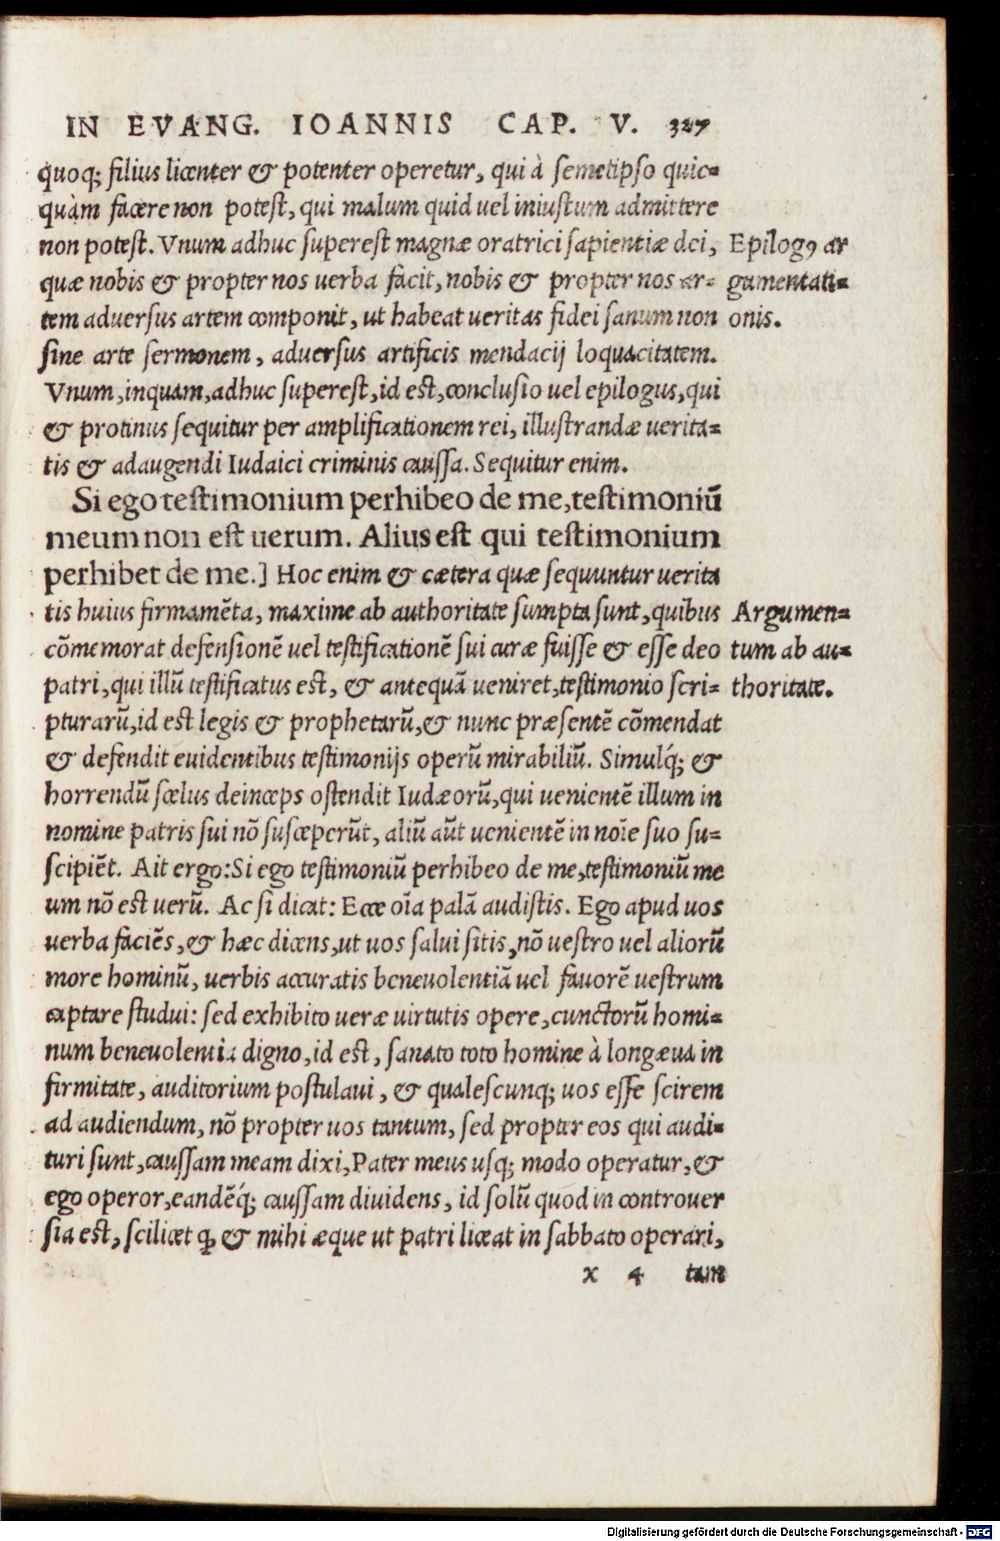 IN EVANG. IOANNIS CAP. V. 327
quoq; filius licenter & potenter operetur, qui à semetipso quic=
quàm facere non potest, qui malum quid uel iniustum admittere
non potest. Vnum adhuc superest magnæ oratrici sapientiæ dei,
quæ nobis & propter nos uerba facit, nobis & propter nos ar=
tem aduersus artem componit, ut habeat ueritas fidei sanum non
sine arte sermonem, aduersus artificis mendacij loquacitatem.
Vnum, inquam, adhuc superest, id est, conclusio uel epilogus, qui
& protinus sequitur per amplificationem rei, illustrandæ uerita=
tis & adaugendi Iudaici criminis caussa. Sequitur enim.
Epilogꝰ ar
gumentati=
onis.
Si ego testimonium perhibeo de me, testimoniũ
meum non est uerum. Alius est qui testimonium
perhibet de me.] Hoc enim & cætera quæ sequuntur uerita
tis huius firmamẽta, maxime ab authoritate sumpta sunt, quibus
cõmemorat defensionẽ uel testificationẽ sui curæ fuisse & esse deo
patri, qui illũ testificatus est, & antequã ueniret, testimonio scri=
pturarũ, id est legis & prophetarũ, & nunc præsentẽ cõmendat
& defendit euidentibus testimonijs operũ mirabiliũ. Simulq́; &
horrendũ scelus deinceps ostendit Iudæorũ, qui uenientẽ illum in
nomine patris sui nõ susceperũt, aliũ aũt uenientẽ in noĩe suo su=
scipiẽt. Ait ergo: Si ego testimoniũ perhibeo de me, testimoniũ me
um nõ est uerũ. Ac si dicat: Ecce oĩa palã audistis. Ego apud uos
uerba faciẽs, & hæc dicens, ut uos salui sitis, nõ uestro uel aliorũ
more hominũ, uerbis accuratis beneuolentiã uel fauorẽ uestrum
captare studui: sed exhibito ueræ uirtutis opere, cunctorũ homi=
num beneuolentia digno, id est, sanato toto homine à longæua in
firmitate, auditorium postulaui, & qualescunq; uos esse scirem
ad audiendum, nõ propter uos tantum, sed propter eos qui audi=
turi sunt, caussam meam dixi, Pater meus usq; modo operatur, &
ego operor, eandẽq́; caussam diuidens, id solũ quod in controuer
sia est, scilicet ꝙ & mihi æque ut patri liceat in sabbato operari,
Argumen=
tum ab au=
thoritate.
x 4 tam
Digitalisierung gefördert durch die Deutsche Forschungsgemeinschaft - DFG